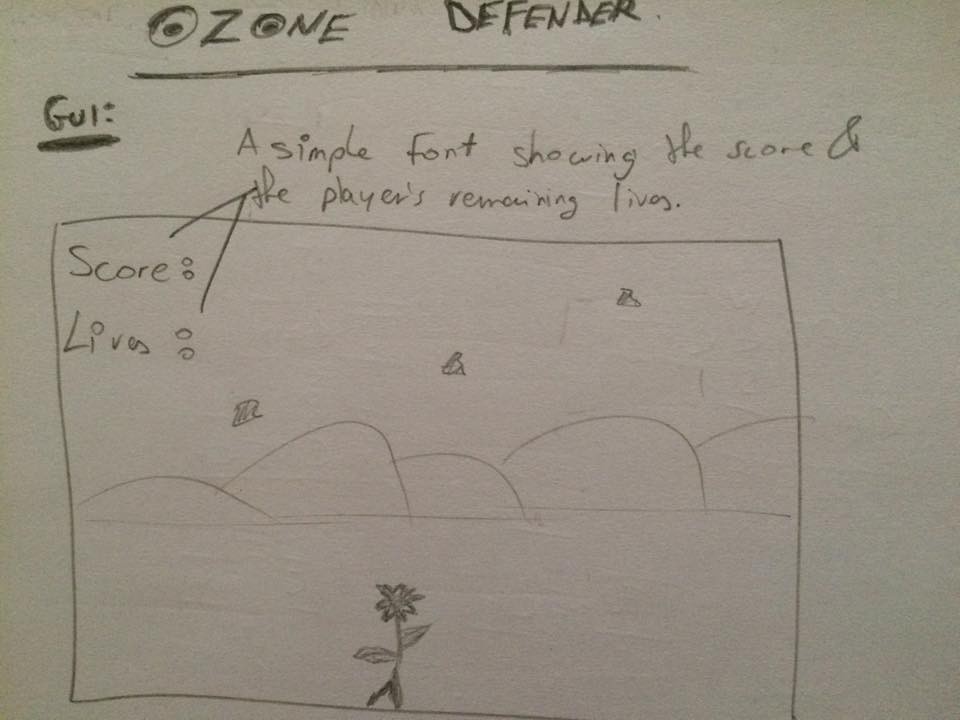 OZONE DEFENDER.
GUI:
A simple font showing the score &
the player's remaining lives.
Score:
Lives: